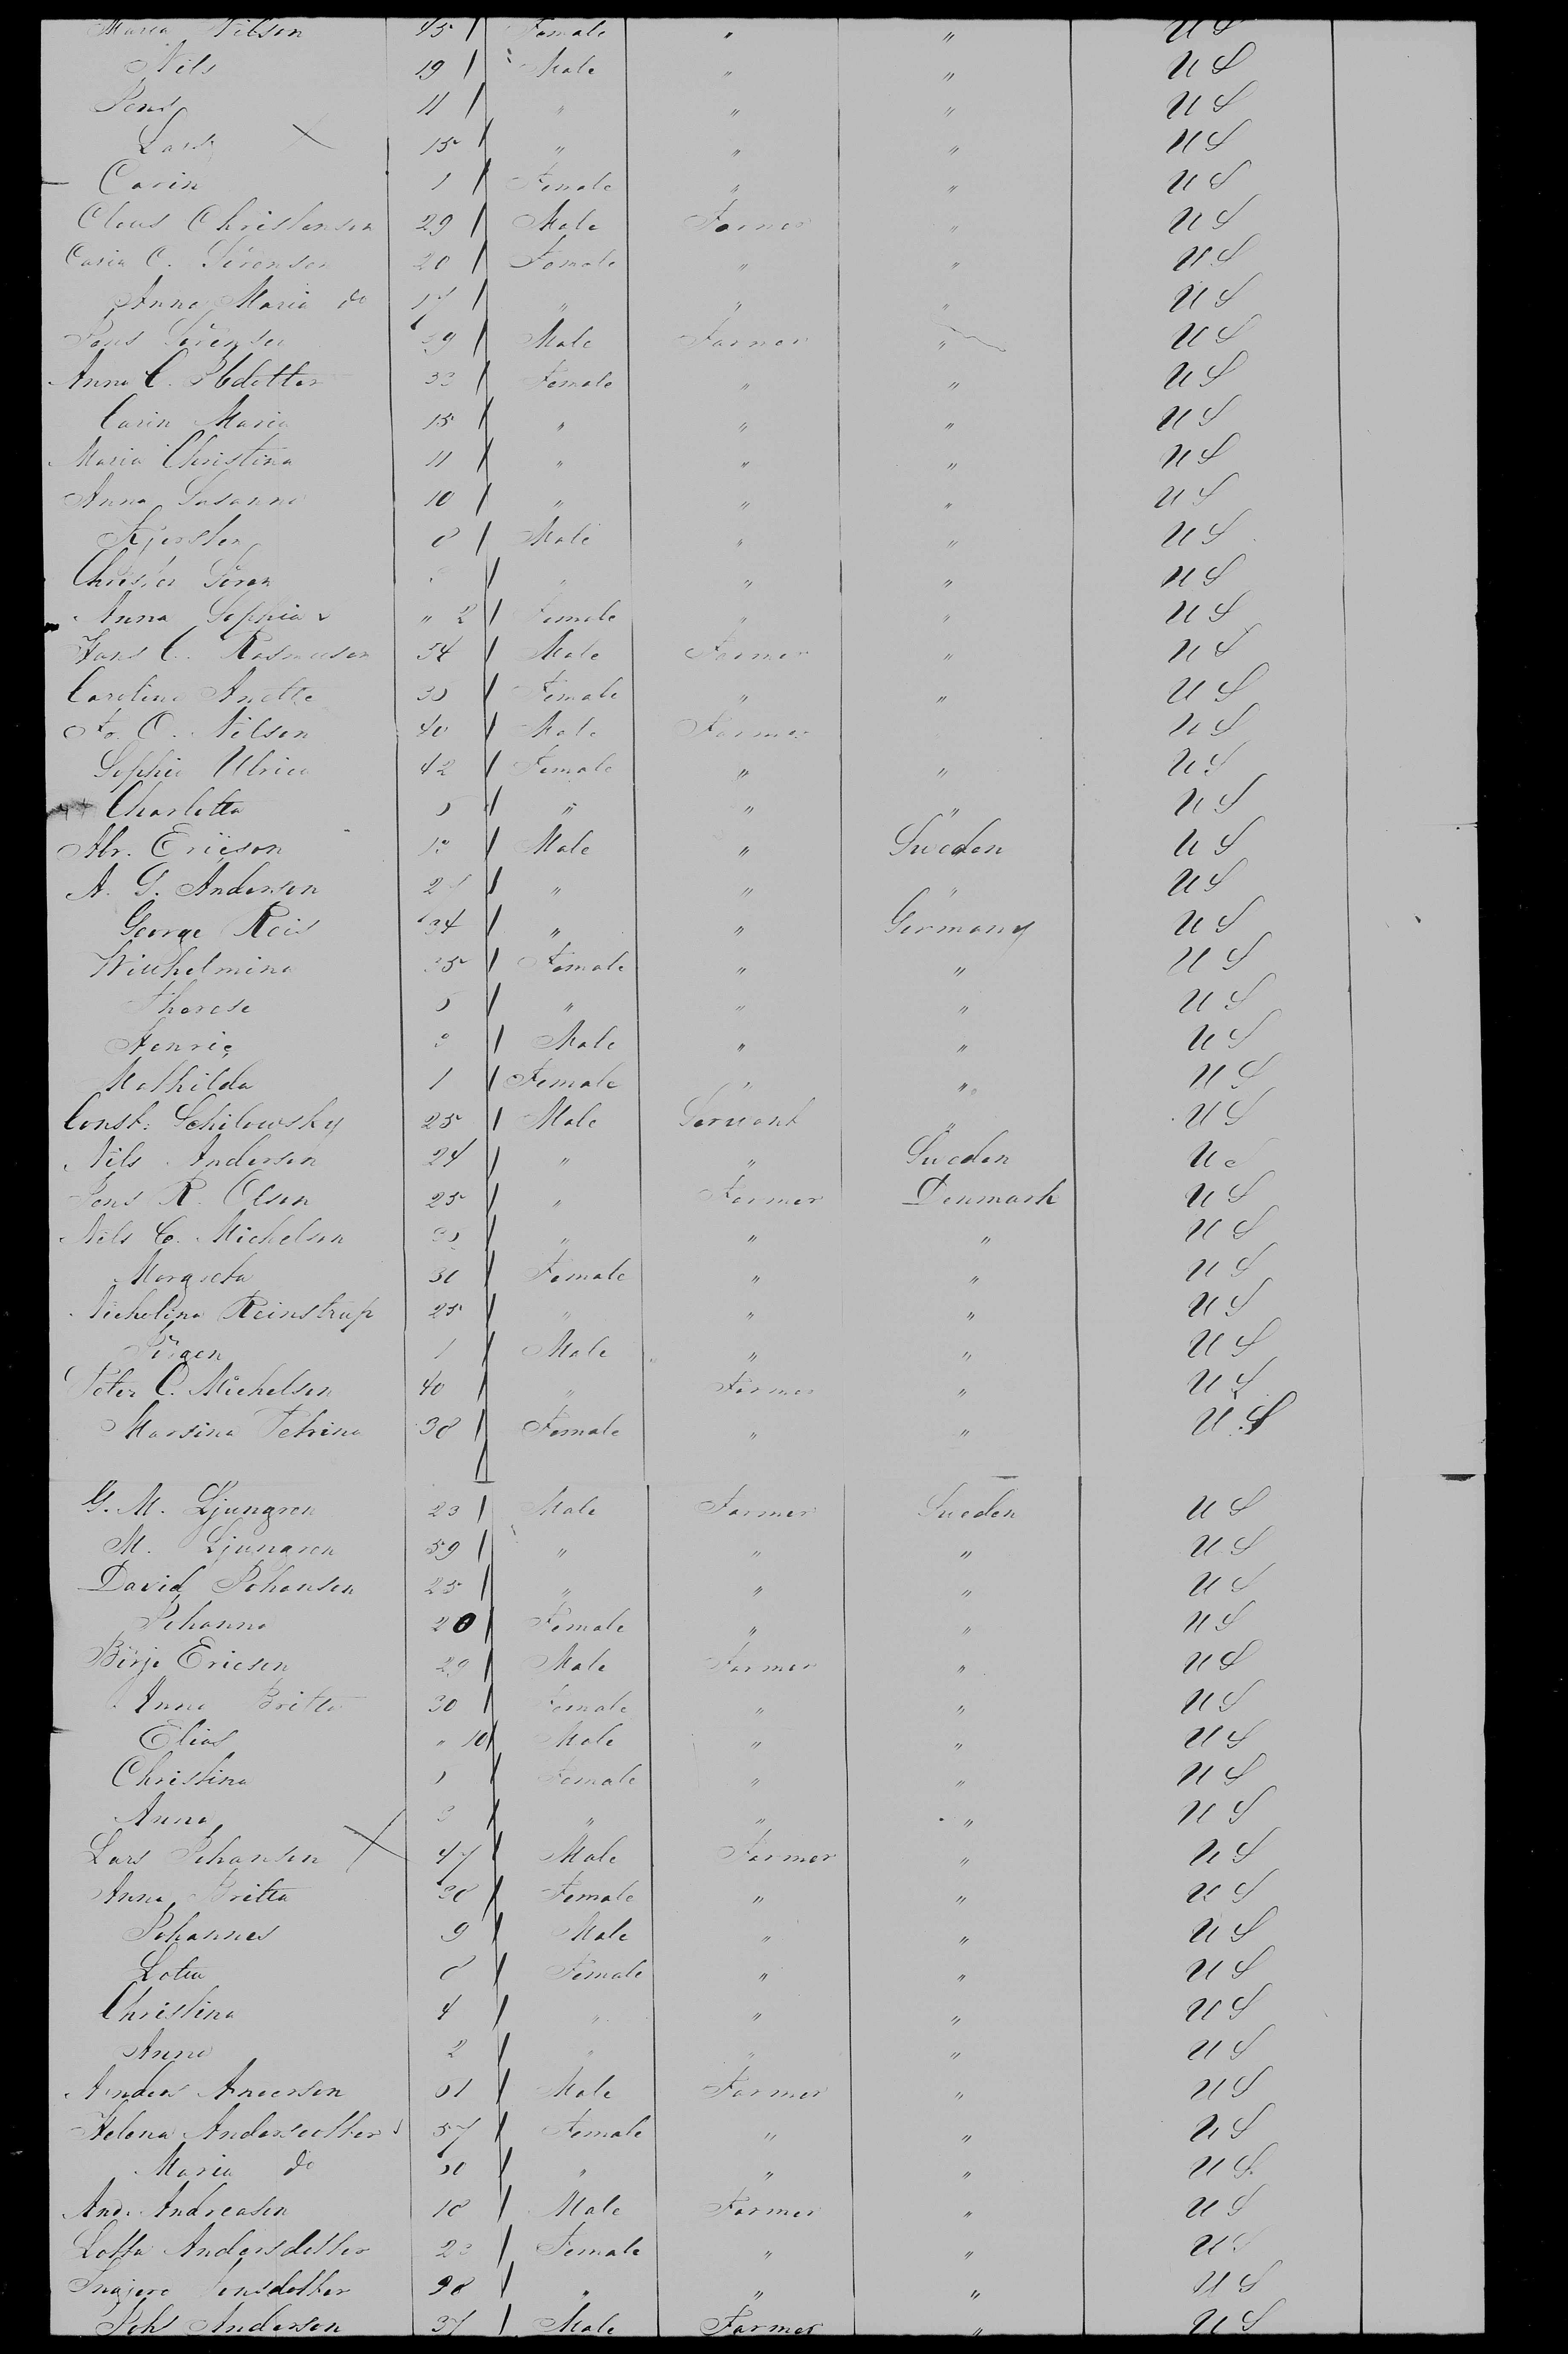 Maria Nilson 45 Female " " U S
Nils 19 Male " " U S
Jens 11 " " " U S
Lars 15 " " " U S
Carin 1 Female " " U S
Claus Christensen 29 Male Farmer " U S
Carin C. Sörensen 20 Female " " U S
Anna Maria do 17 " " " U S
Jens Sörensen 39 Male Farmer " U S
Anna C. 33 Female " " U S
Carin Maria 15 " " " U S
Maria Christina 11 " " " U S
Anna Susanna 10 " " " U S
Kjersten 8 Male " " U S
Christen Sören " " " U S
Anna Sophia " 2 Female " " U S
Hans C. Rasmusen 34 Male Farmer " U S
Carolina Anette 35 Female " " U S
Fr. O. Nilson 40 Male Farmer U S
Sophia Ulrica 42 Female " " U S
Charlotta 5 " " " U S
Abr. Ericson Male " Sweden U S
A. G. Anderson " " " U S
George Reis 34 " " Germany U S
Wilhelmina 35 Female " " U S
Therese 5 " " " U S
Henric Male " " U S
Mathilda 1 Female " " U S
Const: Schilowsky 25 Male Servant " U S
Nils Anderson 24 " " Sweden U S
Jens R. Olsen 25 " Farmer Denmark U S
Nils C. Michelsen 35 " " " U S
Margreta 30 Female " " U S
Nicholina Reinstrup 25 " " " U S
Jörgen 1 Male " " U S
Peter C. Michelsen 40 " Farmer " U S
Marsina Petrina 38 Female " " U S
G. M. Ljungren 23 Male Farmer Sweden U S
M. Ljungren 59 " " " U S
David Johansen 25 " " " U S
Johanna 20 Female " " U S
Börje Ericsen 29 Male Farmer " U S
Anna Britta 30 Female " " U S
Elias " 10 Male " " U S
Christina 5 Female " " U S
Anna 3 " " " U S
Lars Johansen 47 Male Farmer " U S
Anna Britta 38 Female " " U S
Johannes 9 Male " " U S
Lotta 8 Female " " U S
Christina 4 " " " U S
Anna 2 " " " U S
Anders Anderson 51 Male Farmer " U S
Helena Andersdotter 57 Female " " U S
Maria do " " " U S
And. Andreasen 18 Male Farmer " U S
Lotta Andersdotter 23 Female " " U S
Jensdotter 98 " " " U S
Joh. Anderson 37 Male Farmer " U S